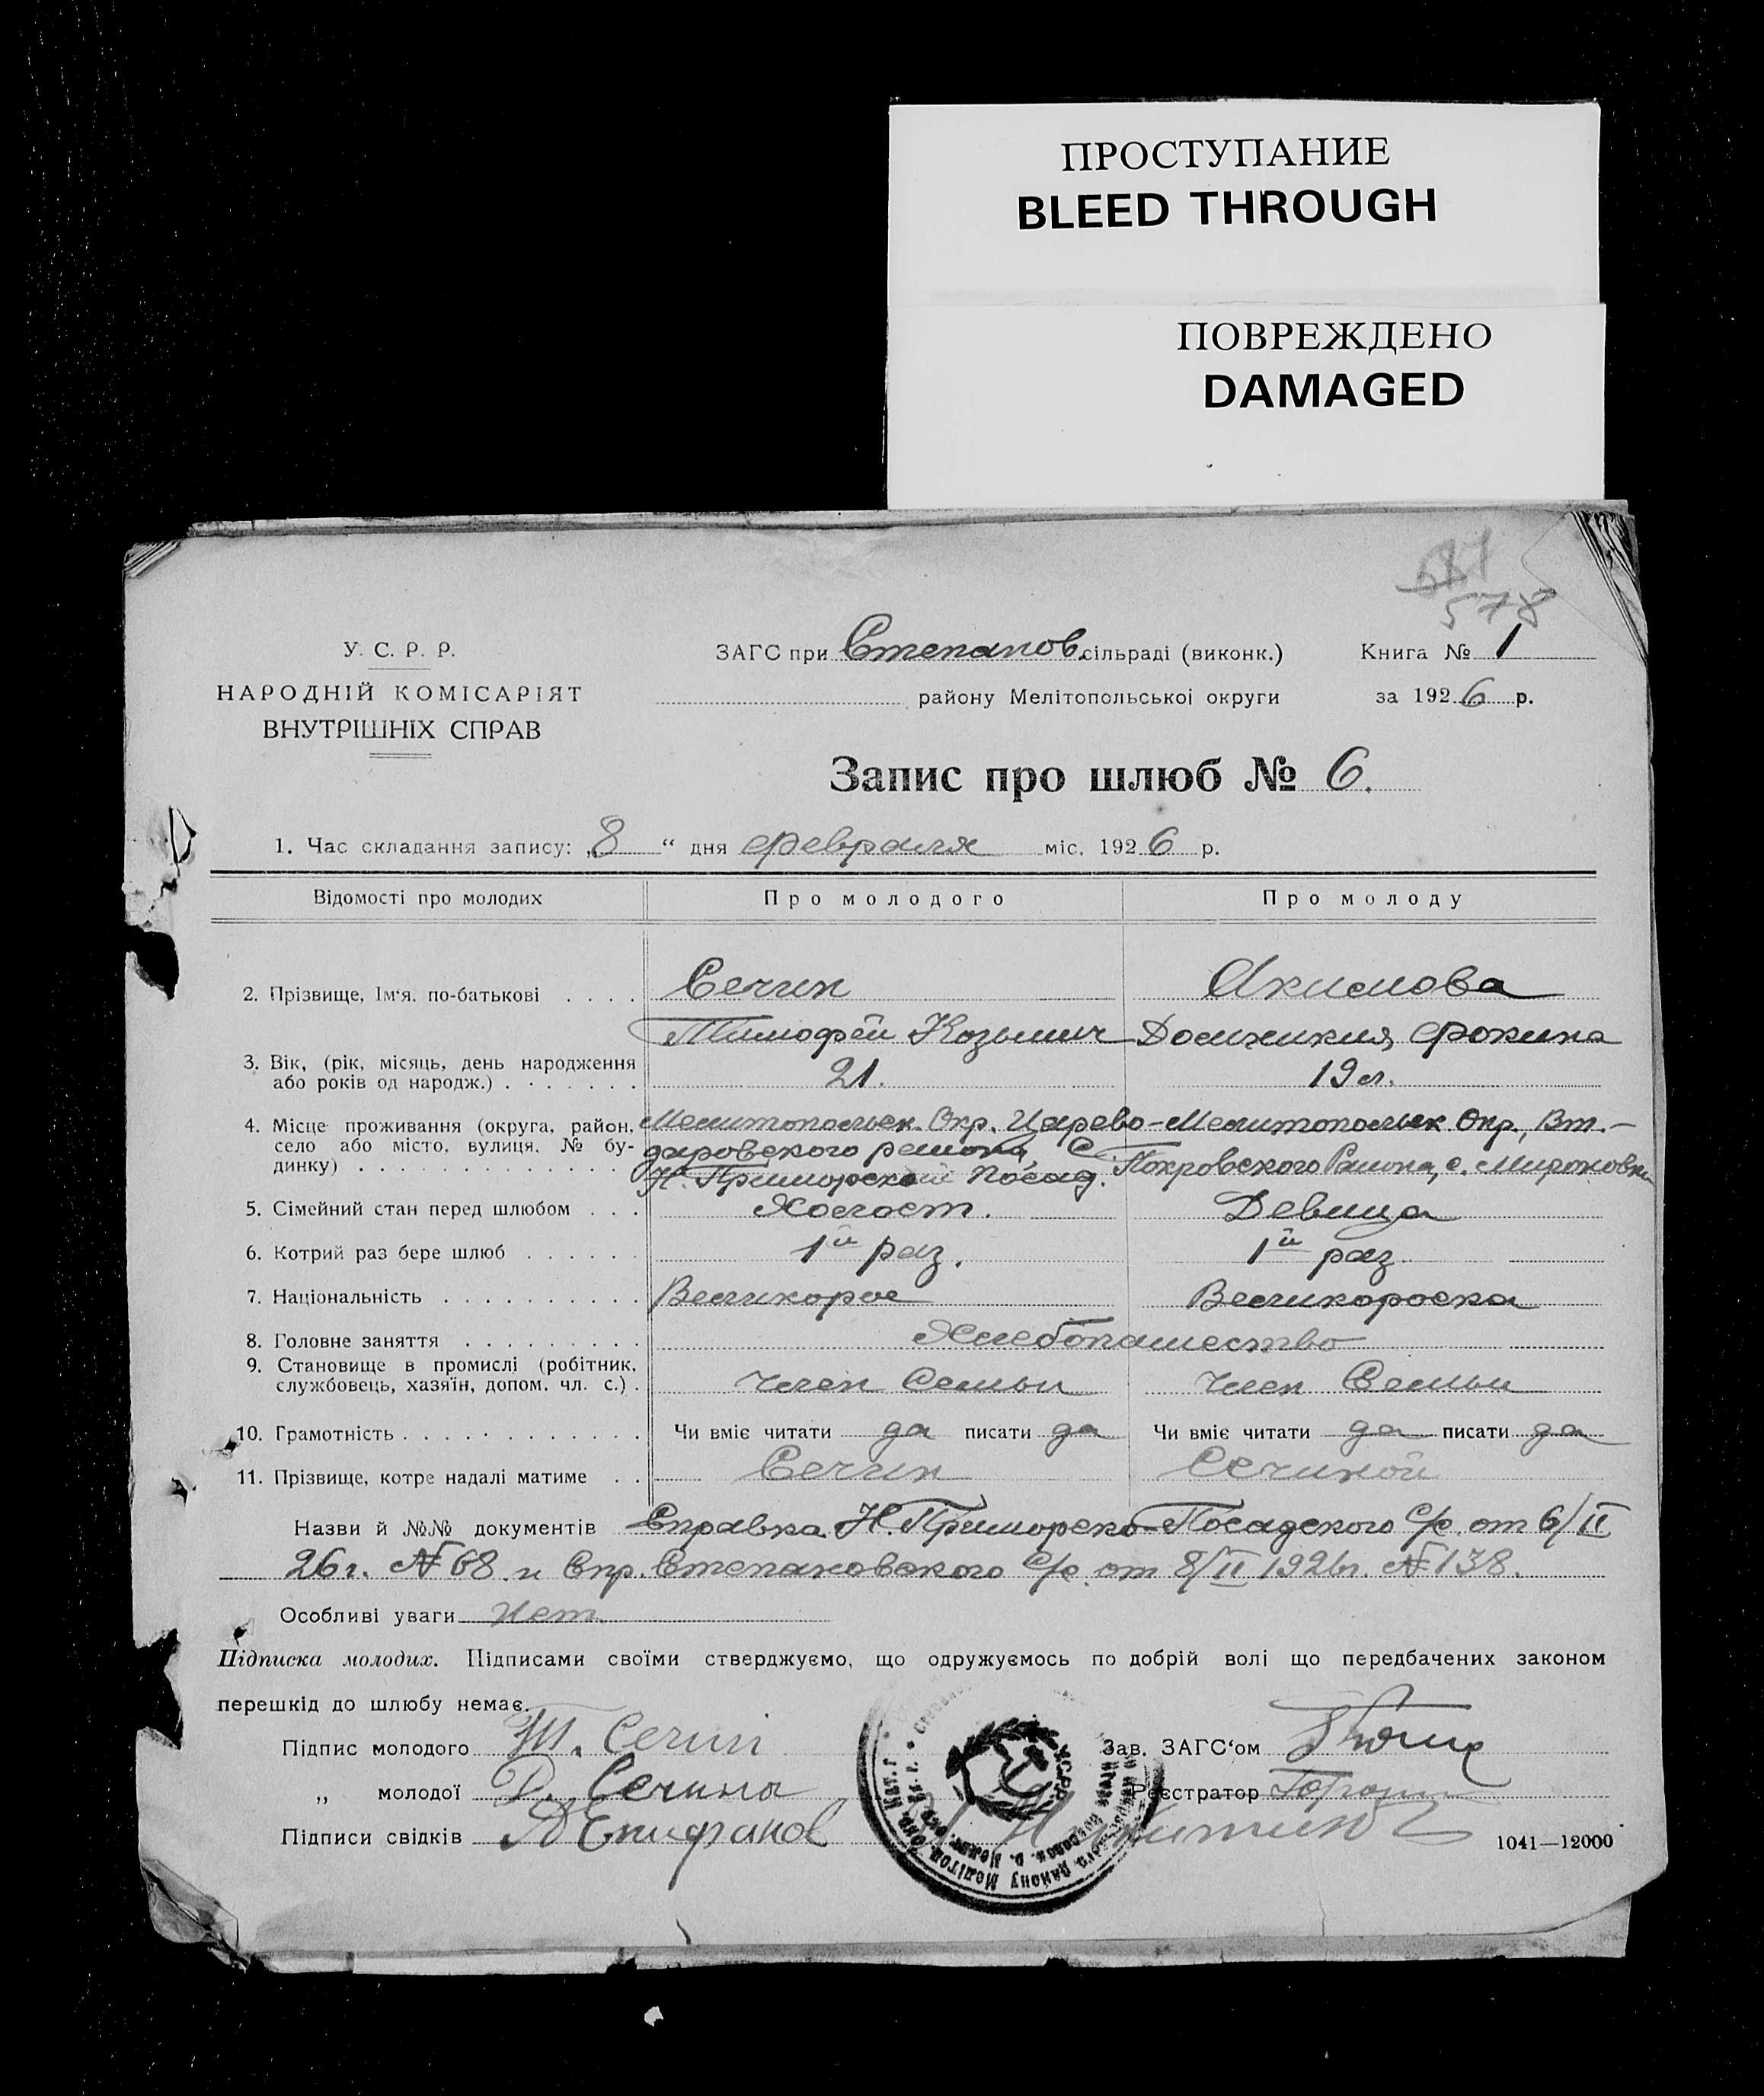 ПРОСТУПАНИЕ
BLEED THROUGH
ПОВРЕЖДЕНО
DAMAGED
578
У. С. Р. Р.
НАРОДНІЙ КОМІСАРІЯТ
ВНУТРІШНІХ СПРАВ
ЗАГС при Степанов. сільраді (виконк.)
району Мелітопольської округи
Книга № 1
за 1926 р.
Запис про шлюб № 6.
1. Час складання запису: „8“ дня февраля міс. 1926 р.
Відомості про молодих Про молодого Про молоду
2. Прізвище, Ім‘я, по-батькові . . . . Сечин Акимова
Тимофей Козьмич Домникия Фокина
3. Вік, (рік, місяць, день народження
або років од народж.) . . . . . . . 21. 19 л.
4. Місце проживання (округа, район, Мелитопольск. Окр. Царево- Мелитопольск Окр., Вт.-
село або місто, вулиця, № бу- даровского района, С. Покровского Района, с. Мироновки
динку) . . . . . . . . . . . . . Н. Приморский Посад.
5. Сімейний стан перед шлюбом . . . Холост. Девица
6. Котрий раз бере шлюб . . . . . . 1й раз. 1й раз
7. Національність . . . . . . . . . . Великорос Великороска
8. Головне заняття . . . . . . . . . Хлебопашество
9. Становище в промислі (робітник,
службовець, хазяїн, допом. чл. с.) . Член Семьи Член Семьи
10. Грамотність . . . . . . . . . . . . Чи вміє читати да писати да Чи вміє читати да писати да
11. Прізвище, котре надалі матиме . . Сечин Сечиной
Назви й №№ документів Справка Н. Приморско-Посадского С/с. от 6/II
26 г. № 68 и Спр. Степановского С/с. от 8/II 1926 г. № 138.
Особливі уваги нет
Підписка молодих. Підписами своїми стверджуємо, що одружуємось по добрій волі що передбачених законом
перешкід до шлюбу немає.
Підпис молодого Т. Сечин
„ молодої Д. Сечина
Підписи свідків Епифанов
Зав. ЗАГС‘ом
Реєстратор
1041—12000